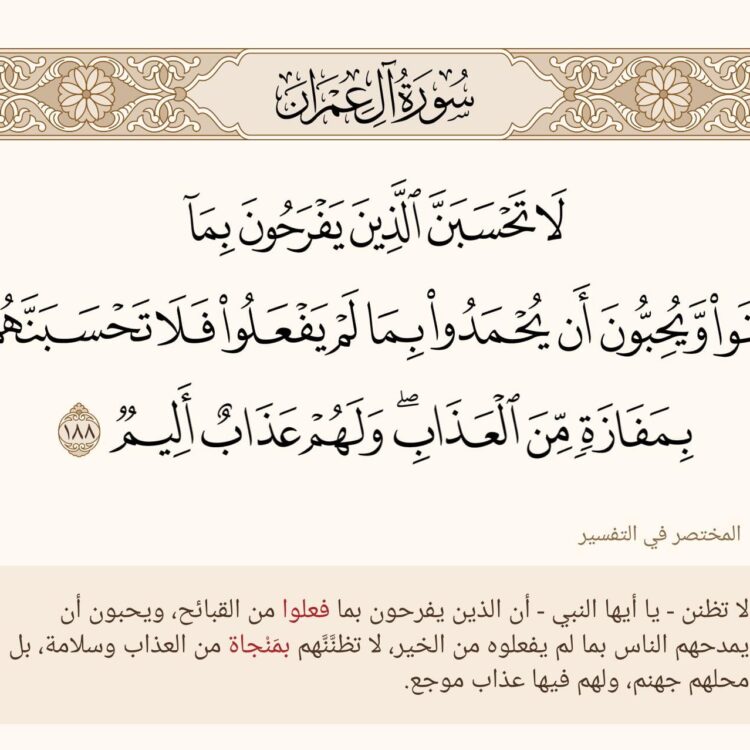 سُورَةُ آلِ عِمْرَان
لَا تَحْسَبَنَّ ٱلَّذِينَ يَفْرَحُونَ بِمَآ
وَّيُحِبُّونَ أَن يُحْمَدُوا۟ بِمَا لَمْ يَفْعَلُوا۟ فَلَا تَحْسَبَنَّهُم
بِمَفَازَةٍ مِّنَ ٱلْعَذَابِ ۖ وَلَهُمْ عَذَابٌ أَلِيمٌ ١٨٨
المختصر في التفسير
لا تظنن - يا أيها النبي - أن الذين يفرحون بما فعلوا من القبائح، ويحبون أن
يمدحهم الناس بما لم يفعلوه من الخير، لا تظنَّنَّهم بمَنْجاة من العذاب وسلامة، بل
محلهم جهنم، ولهم فيها عذاب موجع.